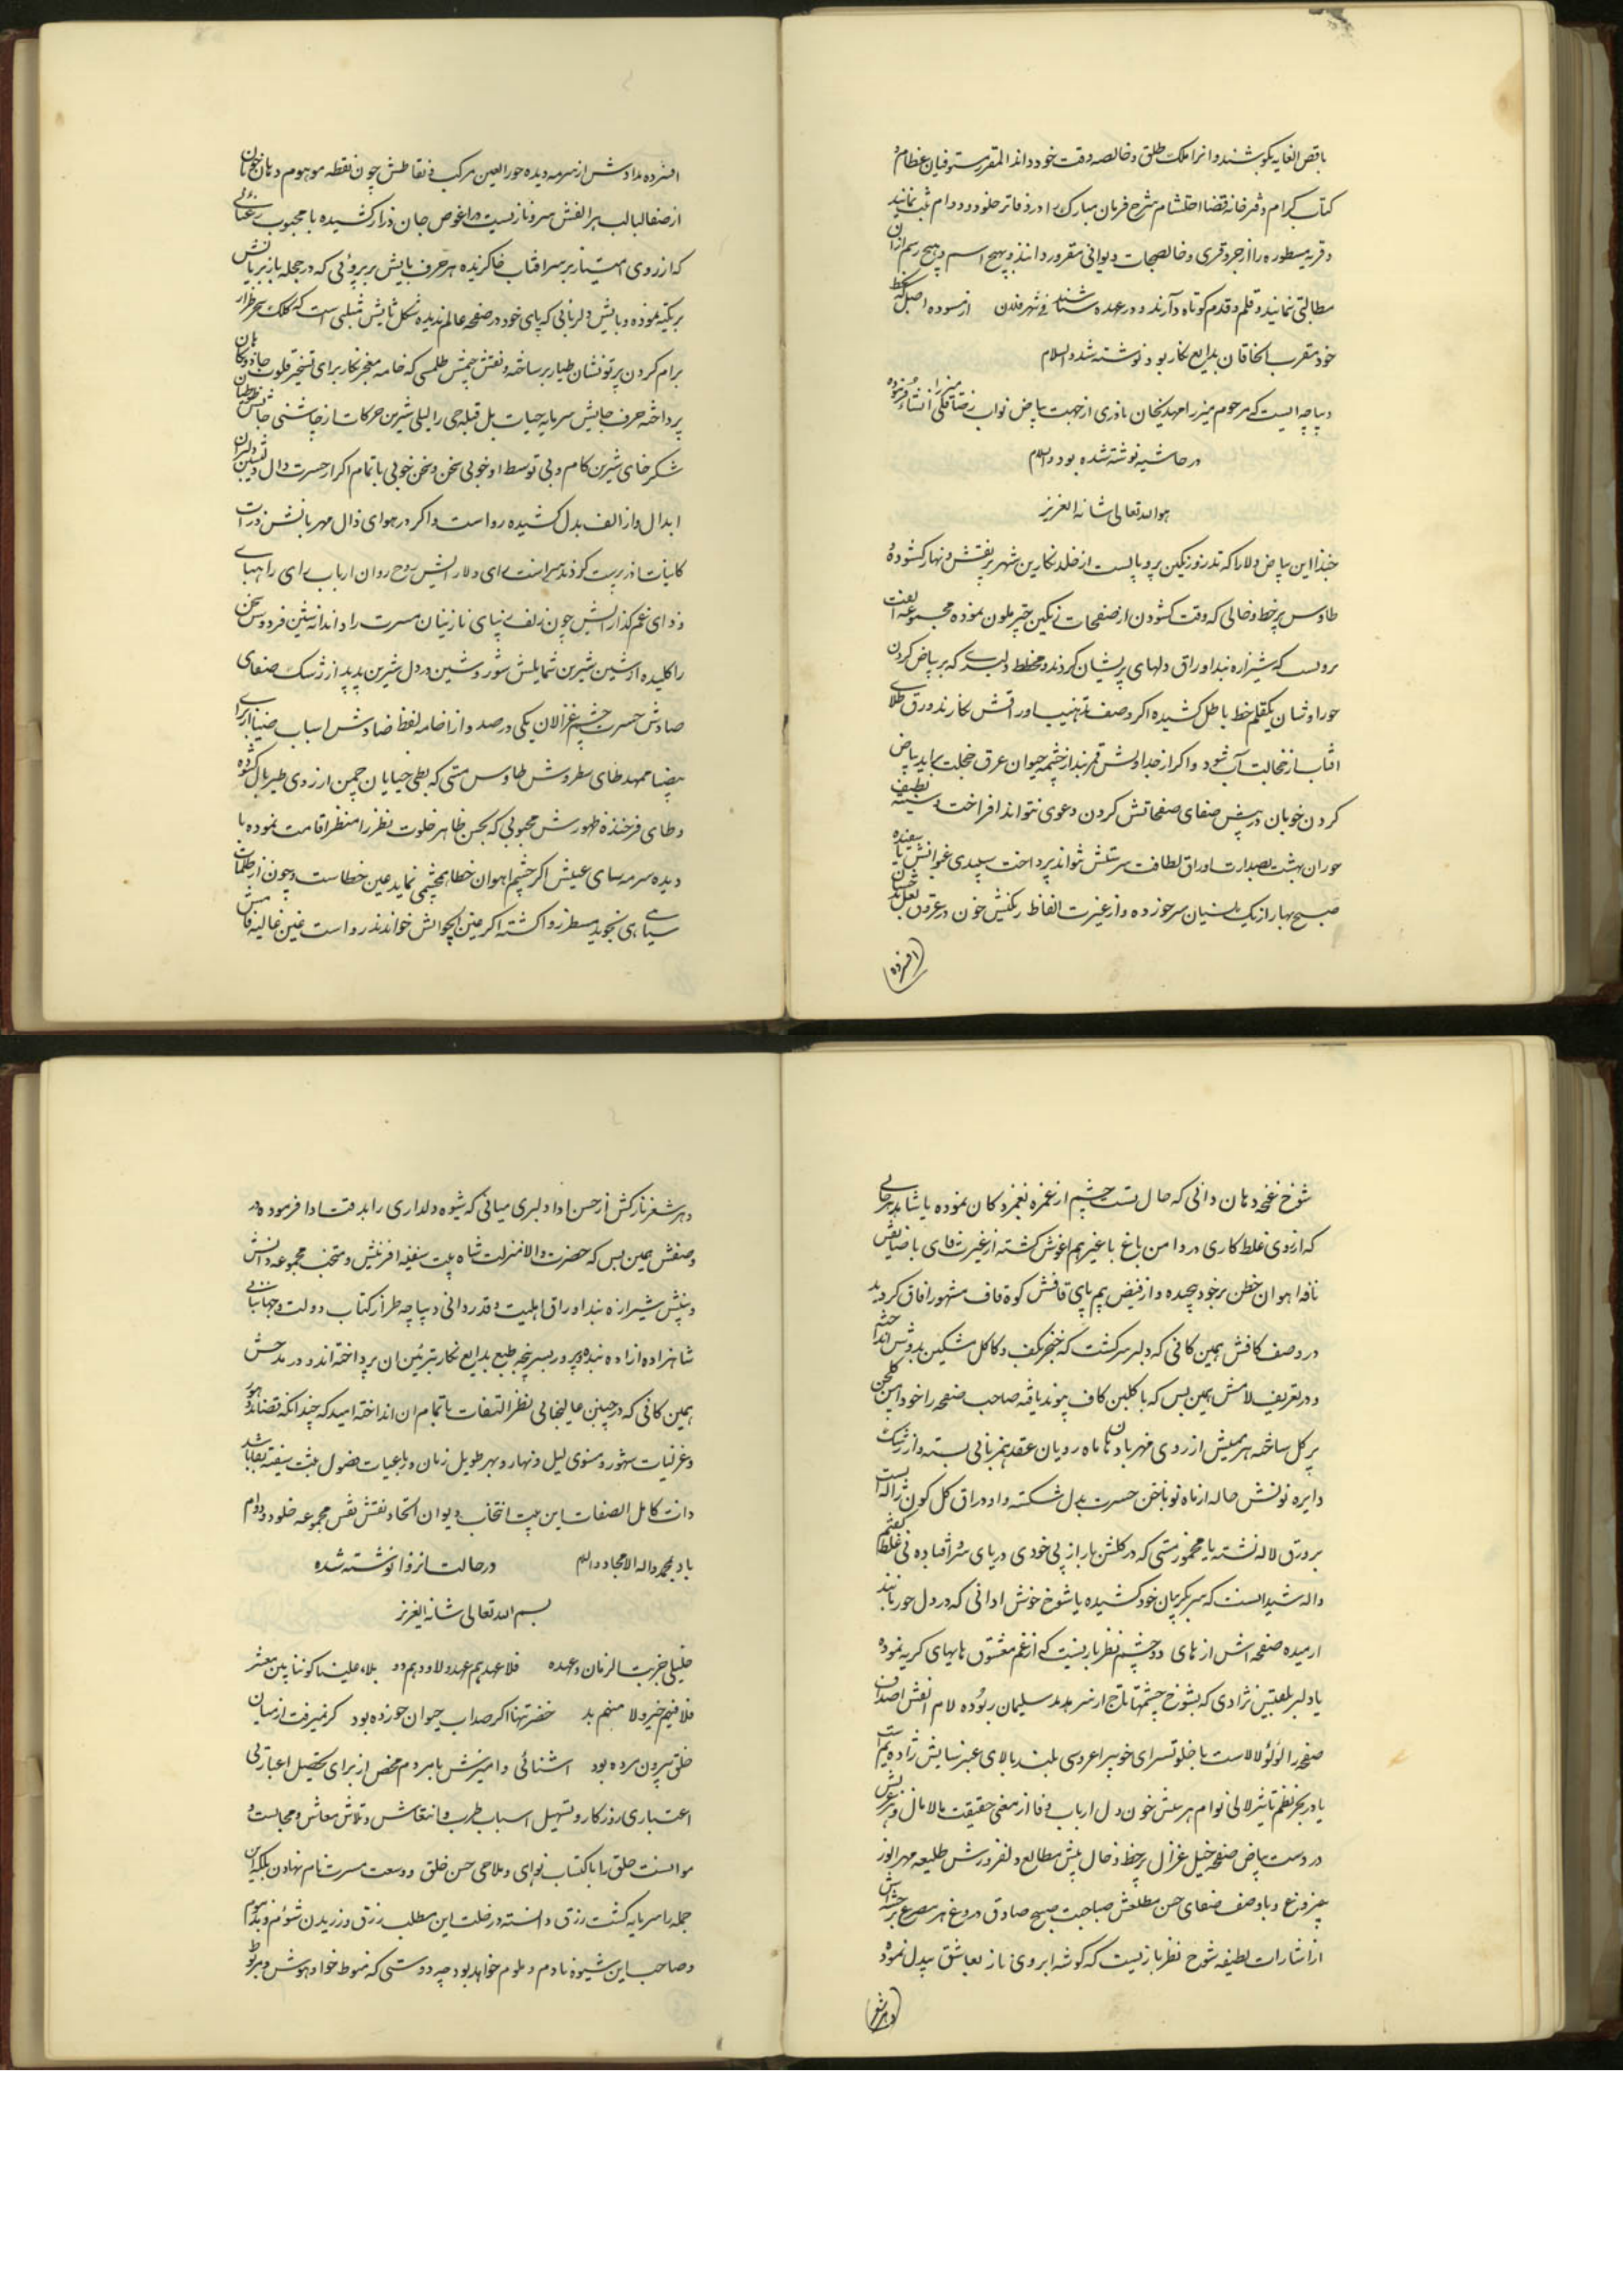 باقصی الغایه بکوشند و انرا ملک طلق و خالصه وقت خود دانند المقرر مستوفیان عظام و
کتاب کرام دفترخانه قضا احتشام شرح فرمان مبارک را در دفاتر خلود و دوام ثبت نمایند
و قریه مسطوره را از جزو قری و خالصجات دیوانی مفروز دانند و بهیچ اسم و بهیچ رسم از ان
مطالبتی ننمایند و قلم و قدم کوتاه دارند و در عهده شناسند فی شهر فلان از مسوده اصل که بخط
خود مقرب الخاقان بدایع نکار بود نوشته شد والسلام
دیباچه ایست که مرحوم میرزا مهدیخان نادری از جهت بیاض نواب رضاقلی میرزا انشاء فرموده
در حاشیه نوشته شده بود والسلام
هو الله تعالی شانه العزیز
حبذا این بیاض دلارا که تذرو رنکین پر و بالیست از خلد نکارین شهپر بنقش و نهار کشوده و
طاوس پر خط و خالی که وقت کشودن از صفحات رنکین چتر ملون نموده مجموعه الفت
که شیرازه بند اوراق دلهای پریشان کردند و مخطط دلبریست که بر بیاض کردن
حوراوشان یکقلم خط باطل کشیده اکر وصف تذهیب اوراقش نکارند ورق طلای
افتاب از خجالت آب شود و اکر از جداولش رقم زنند از چشمه حیوان عرق خجلت براید بیاض
کردن خوبان در پیش صفای صفحاتش کردن دعوی نتواند افراخت و سینه لطیف
حوران بهشت بصدارت اوراق لطافت سرشتش نتواند پرداخت سپیدی عنوانش با سفیده
صبح بهار از یک کریبان سر زده و از غیرت الفاظ رنکینش خون در عروق لعل بدخشان
افسرده
افسرده مدادش از سرمه دیده حور العین مرکب و نقاطش چون نقطه موهوم دهان خوبان
از صفا لبالب هر الفش سرو نازیست در اغوش جان دراز کشیده با محبوب رعنائی
که از روی امتیاز بر سر افتاب خاکزیده هر حرف بایش پریروئی که در حجله ناز بر بالش
بر تکیه نموده و تایش دلربائی که پای خود در صفحه عالم ندیده شکل ثایش مثلثی است که کلک سحرطراز
برام کردن پرتونشان طیار ساخته و نقش جیمش طلسمی که خامه معجزنکار برای تسخیر قلوب جادوکان
پرداخته حرف حایش سرمایه حیات بل قبله حی را لیلی شیرین حرکات از چاشنی خایش طوطیان
شکرخای شیرین کام و بی توسط او خوبی سخن و سخن خوبی ناتمام اکر از حسرت دال دلنشین
ابدال و از الف بدل کشیده رواست و اکر در هوای ذال مهربانش ذرات
کاینات ذره تربیت کردند سزاست رای دلارایش روح روان ارباب رای را مهیای
و زای غمکدارایش چون زلف زیبای نازنینان مسرت را دندانه سین فردوس سخن
را کلیده از شین شیرین شمایلش شور و شین در دل شیرین پدید از رشک صفای
صادش حسرت چشم غزالان یکی در صد و از خامه لفظ ضادش اسباب ضیا از برای
بیضا ممهد طای سطروش طاوس مستی که بطی خیابان چمن از روی طیر بال کشوده
و ظای فرخنده ظهورش محبوبی که بحسن ظاهر خلوت نظر را منظر اقامت نموده با
دیده سرمه سای عینش اکر چشم اهوان خطا همچشمی نماید عین خطاست و چون از ظلمات
سیاهی نجوید مسطر رو اکشته اکر عین الحیوانش خوانند رواست غین غالیه فامش
شوخ غنچه دهان دانی که خال تست چشم از غمزه بغمزه کان نموده یا شاهد هرجائی
که از روی غلط کاری در دامن باغ با غیر هم اغوش کشته از غیرت فای با ضیافتش
نافه اهوان ختن بر خود پیچیده و از فیض یم پای قافش کوه قاف مشهور افاق کردید
در وصف کافش همین کافی که دلبر سرکشست که خنجر بکف و کاکل مشکین بدوش انداخته
و در تعریف لامش همین بس که با کلبن کاف پیوند یافته صاحب صفحه را خود این کلچین
پر کل ساخته هر میمش از روی مهر با دهان ماه رویان عقد همزبانی بسته و از رشک
دایره نونش هاله از ماه نو ناخن حسرت بدل شکسته واو اوراق کل کون ژاله ایست
بر ورق لاله نشسته یا مخمور مستی که در کلشن بار از بی خودی در پای سرو افتاده نی غلط کفتم
واله شیدائیست که سر بکریبان خود کشیده یا شوخ خوش ادائی که در دل حور مانند
ارمیده صفحه اش از های دو چشم نظربازیست که از غم معشوق های های کریه نموده
یا دلبر بلقیس نژادی که بشوخ چشمیها تاج از سر هدهد سلیمان ربوده لام الفش اصداف
صفحه را لؤلؤ لالاست یا خلوتسرای خوبیرا عروسی بلند بالای عنبرسایش زاده یم است
یا در بحر نظم و نثر لالی توام هر بیتش خون دل ارباب وفا از معنی حقیقت مالامال و هر سطرش
در دست بیاض صفحه خیل غزال پر خط و خال پیش مطالع دلفروزش طلیعه مهر انور
بی فروغ و با وصف صفای حسن مطلعش صباحت صبح صادق دروغ هر مصرع برجسته اش
از اشارات لطیفه شوخ نظربازیست که کوشه ابروی ناز بعاشق بیدل نموده
و هر شعر
و هر شعر نازکش از حسن ادا دلبری میانی که شیوه دلداری را بدقت ادا فرموده در
وصفش همین بس که حضرت والا منزلت شاه بیت سفینه افرینش و منتخب مجموعه دانش
و بینش شیرازه بند اوراق اهلیت و قدردانی دیباچه طراز کتاب دولت و جهانبانی
شاهزاده ازاده بنده پرور بسرپنجه طبع بدایع نکار بتزئین ان پرداخته اند و در مدحش
همین کافی که در چنین عالیجنابی نظر التفات باتمام ان انداخته امید که چندانکه قصاید دهور
و غزلیات شهور و مثنوی لیل و نهار و بحر طویل زمان و رباعیات فصول ثبت سفینه بقا باشد
ذات کامل الصفات این بیت انتخاب دیوان اتحاد نقش نفس مجموعه خلود و دوام
باد بمحمد واله الامجاد والسلام در حالت انزوا نوشته شده
بسم الله تعالی شانه العزیز
خلیلی جربت الزمان و عهده فلا عهدهم عهد ولا ودهم ود بلاء علینا کوننا بین معشر
فلا فیهم خیر ولا منهم بد خضر تنها اکر صد اب حیوان خورده بود کر نمیرفت از میان
خلق بیرون مرده بود اشنائی و امیزش با مردم محض از برای تحصیل اعتبار بی
اعتباری روزکار و تسهیل اسباب طرب و انتعاش و تلاش معاش و مجالست و
موانست خلق را باکتساب نوای و ملاحی حسن خلق و وسعت مسرت نام نهادن بلکه این
جمله را سرمایه کشت رزق دانسته در خلت این مطلب زرق ورزیدن شوم و مذموم
و صاحب این شیوه نادم و ملوم خواهد بود چه دوستی که منوط خواهش و مربوط